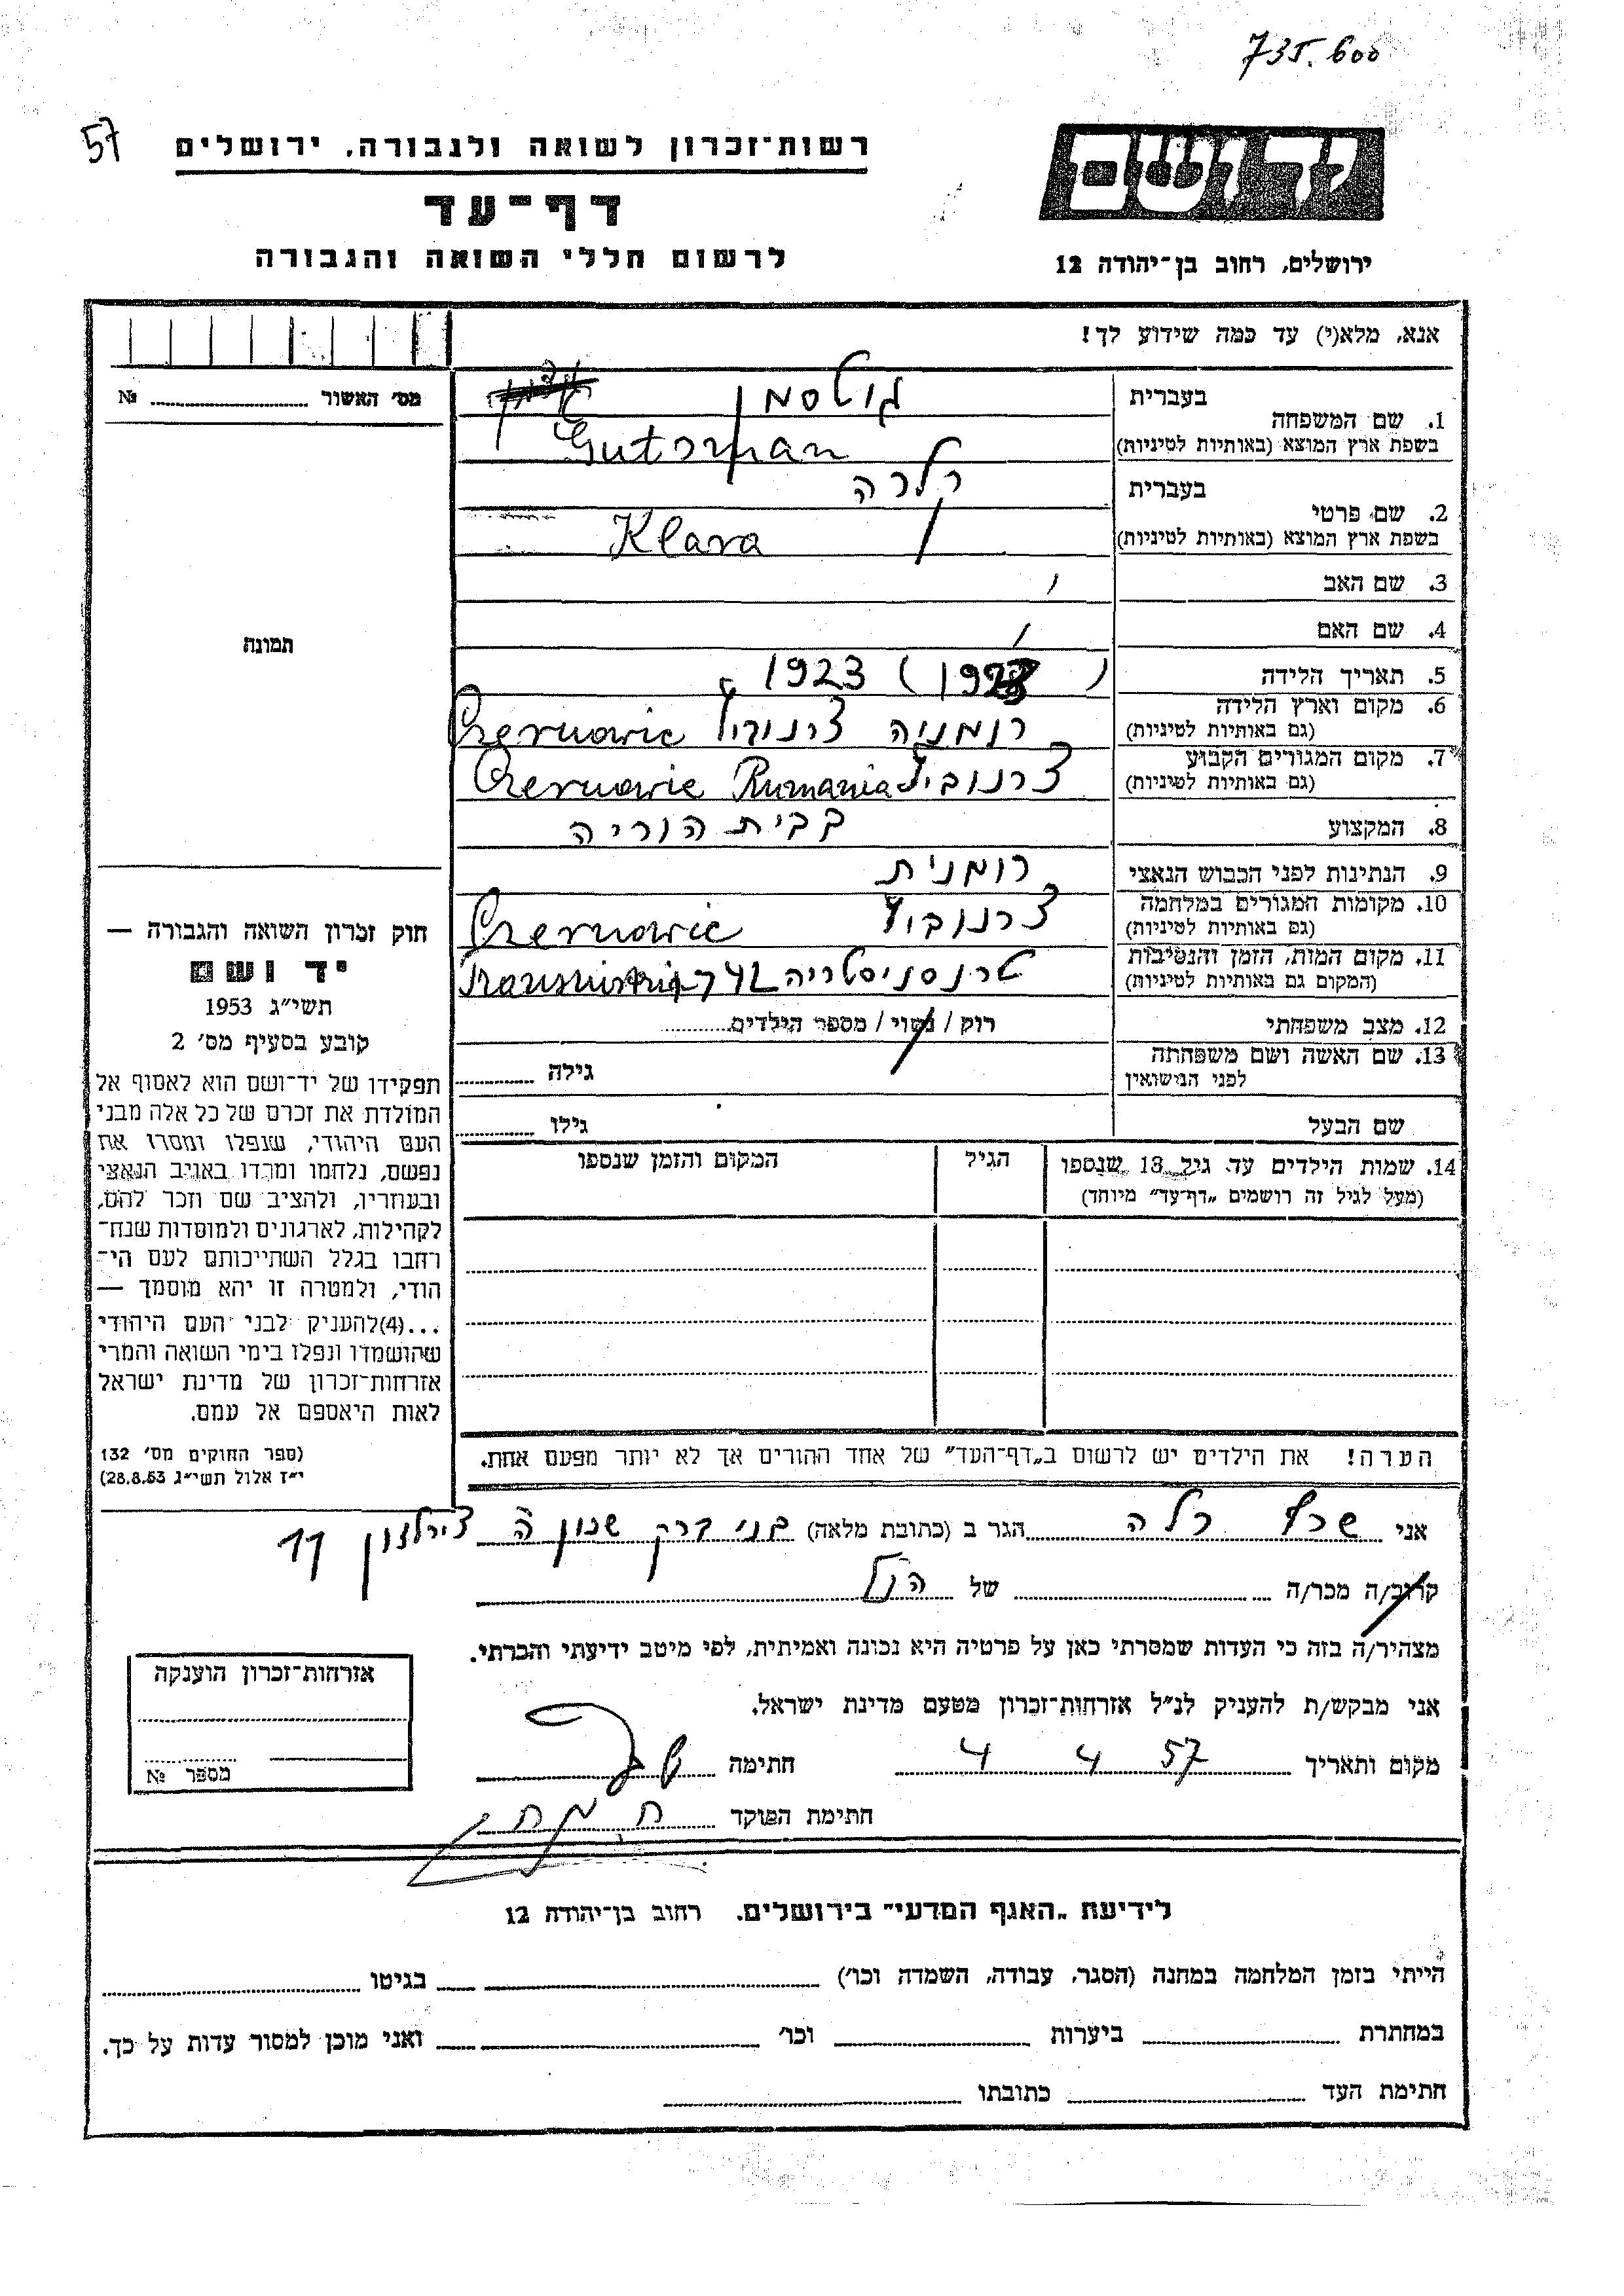 735.600
57
רשות־זכרון לשואה ולגבורה, ירושלים
דף־עד
לרשום חללי השואה והגבורה
יד ושם
ירושלים, רחוב בן־יהודה 12
אנא, מלא(י) עד כמה שידוע לך!
מס' האשור № 
1. שם המשפחה
בעברית גוטסמן
בשפת ארץ המוצא (באותיות לטיניות) Gutsman
2. שם פרטי
בעברית קלרה
בשפת ארץ המוצא (באותיות לטיניות) Klara
3. שם האב
4. שם האם
5. תאריך הלידה 1923
6. מקום וארץ הלידה
(גם באותיות לטיניות)
רומניה צרנוביץ Czernowic
7. מקום המגורים הקבוע
(גם באותיות לטיניות)
צרנוביץ Czernowic Rumania
8. המקצוע בבית הוריה
9. הנתינות לפני הכבוש הנאצי רומנית
10. מקומות המגורים במלחמה
(גם באותיות לטיניות)
צרנוביץ Czernowic
11. מקום המות, הזמן והנסיבות
(המקום גם באותיות לטיניות)
טרנסניסטריה
12. מצב משפחתי רוק / נשוי / מספר הילדים
13. שם האשה ושם משפחתה
לפני הנישואין
גילה
שם הבעל גילו
14. שמות הילדים עד גיל 18 שנספו
(מעל לגיל זה רושמים „דף־עד" מיוחד)
הגיל
המקום והזמן שנספו
הערה! את הילדים יש לרשום ב„דף־העד" של אחד ההורים אך לא יותר מפעם אחת.
תמונה
חוק זכרון השואה והגבורה —
יד ושם
תשי"ג 1953
קובע בסעיף מס' 2
תפקידו של יד־ושם הוא לאסוף אל
המולדת את זכרם של כל אלה מבני
העם היהודי, שנפלו ומסרו את
נפשם, נלחמו ומרדו באויב הנאצי
ובעוזריו, ולהציב שם וזכר להם,
לקהילות, לארגונים ולמוסדות שנח־
רחבו בגלל השתייכותם לעם הי־
הודי, ולמטרה זו יהא מוסמך —
...(4)להעניק לבני העם היהודי
שהושמדו ונפלו בימי השואה והמרי
אזרחות־זכרון של מדינת ישראל
לאות היאספם אל עמם.
(ספר החוקים מס' 132
י"ז אלול תשי"ג 28.8.53)
אני הגר ב (כתובת מלאה) בני ברק שכון ה 11
קרוב/ה מכר/ה של הנ"ל
מצהיר/ה בזה כי העדות שמסרתי כאן על פרטיה היא נכונה ואמיתית, לפי מיטב ידיעתי והכרתי.
אני מבקש/ת להעניק לנ"ל אזרחות־זכרון מטעם מדינת ישראל.
מקום ותאריך 4 4 57 חתימה
חתימת הפוקד
אזרחות־זכרון הוענקה
מספר №
לידיעת „האגף המדעי" בירושלים, רחוב בן־יהודה 12
הייתי בזמן המלחמה במחנה (הסגר, עבודה, השמדה וכו') בגיטו
במחתרת ביערות וכו' ואני מוכן למסור עדות על כך.
חתימת העד כתובתו